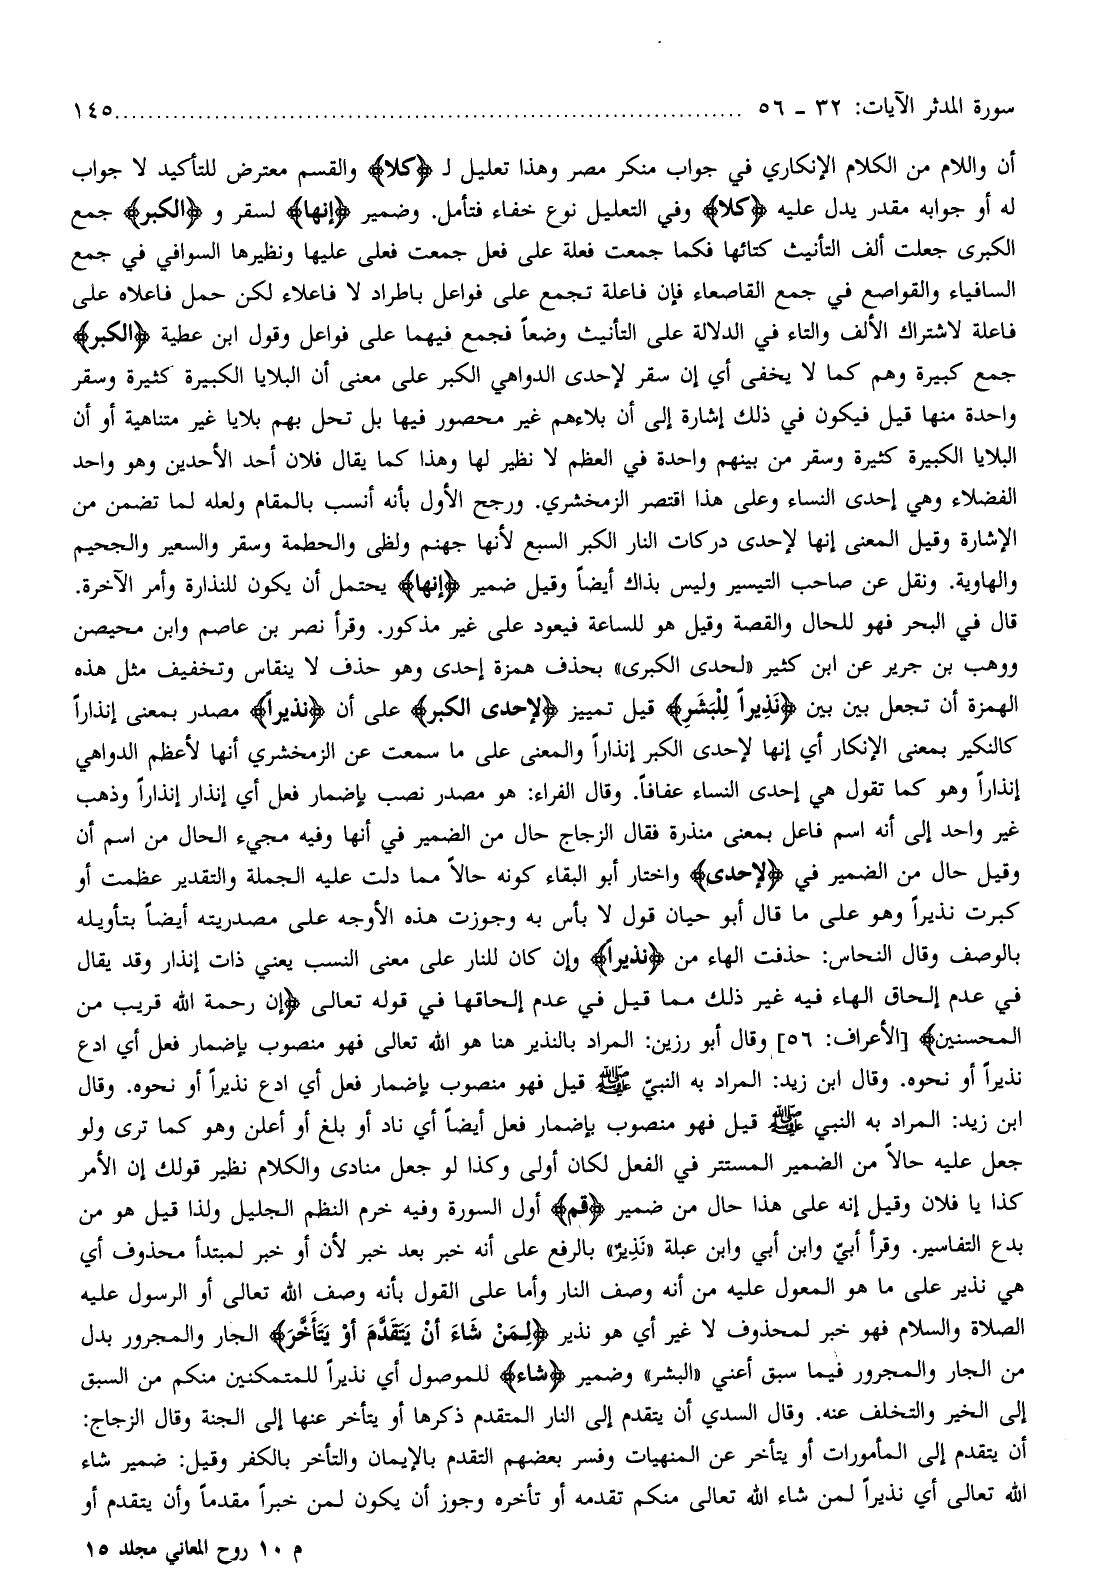 سورة المدثر الآيات: ٣٢ - ٥٦ ........................................ ١٤٥
أن واللام من الكلام الإنكاري في جواب منكر مصر وهذا تعليل لـ ﴿كلا﴾ والقسم معترض للتأكيد لا جواب
له أو جوابه مقدر يدل عليه ﴿كلا﴾ وفي التعليل نوع خفاء فتأمل. وضمير ﴿إنها﴾ لسقر و ﴿الكبر﴾ جمع
الكبرى جعلت ألف التأنيث كتائها فكما جمعت فعلة على فعل جمعت فعلى عليها ونظيرها السوافي في جمع
السافياء والقواصع في جمع القاصعاء فإن فاعلة تجمع على فواعل باطراد لا فاعلاء لكن حمل فاعلاه على
فاعلة لاشتراك الألف والتاء في الدلالة على التأنيث وضعاً فجمع فيهما على فواعل وقول ابن عطية ﴿الكبر﴾
جمع كبيرة وهم كما لا يخفى أي إن سقر لإحدى الدواهي الكبر على معنى أن البلايا الكبيرة كثيرة وسقر
واحدة منها قيل فيكون في ذلك إشارة إلى أن بلاءهم غير محصور فيها بل تحل بهم بلايا غير متناهية أو أن
البلايا الكبيرة كثيرة وسقر من بينهم واحدة في العظم لا نظير لها وهذا كما يقال فلان أحد الأحدين وهو واحد
الفضلاء وهي إحدى النساء وعلى هذا اقتصر الزمخشري. ورجح الأول بأنه أنسب بالمقام ولعله لما تضمن من
الإشارة وقيل المعنى إنها لإحدى دركات النار الكبر السبع لأنها جهنم ولظى والحطمة وسقر والسعير والجحيم
والهاوية. ونقل عن صاحب التيسير وليس بذاك أيضاً وقيل ضمير ﴿إنها﴾ يحتمل أن يكون للنذارة وأمر الآخرة.
قال في البحر فهو للحال والقصة وقيل هو للساعة فيعود على غير مذكور. وقرأ نصر بن عاصم وابن محيصن
ووهب بن جرير عن ابن كثير «لحدى الكبرى» بحذف همزة إحدى وهو حذف لا ينقاس وتخفيف مثل هذه
الهمزة أن تجعل بين بين ﴿نَذِيراً لِلْبَشَرِ﴾ قيل تمييز ﴿لإحدى الكبر﴾ على أن ﴿نذيراً﴾ مصدر بمعنى إنذاراً
كالنكير بمعنى الإنكار أي إنها لإحدى الكبر إنذاراً والمعنى على ما سمعت عن الزمخشري أنها لأعظم الدواهي
إنذاراً وهو كما تقول هي إحدى النساء عفافاً. وقال الفراء: هو مصدر نصب بإضمار فعل أي إنذار إنذاراً وذهب
غير واحد إلى أنه اسم فاعل بمعنى منذرة فقال الزجاج حال من الضمير في أنها وفيه مجيء الحال من اسم أن
وقيل حال من الضمير في ﴿لإحدى﴾ واختار أبو البقاء كونه حالاً مما دلت عليه الجملة والتقدير عظمت أو
كبرت نذيراً وهو على ما قال أبو حيان قول لا بأس به وجوزت هذه الأوجه على مصدريته أيضاً بتأويله
بالوصف وقال النحاس: حذفت الهاء من ﴿نذيراً﴾ وإن كان للنار على معنى النسب يعني ذات إنذار وقد يقال
في عدم إلحاق الهاء فيه غير ذلك مما قيل في عدم إلحاقها في قوله تعالى ﴿إن رحمة الله قريب من
المحسنين﴾ [الأعراف: ٥٦] وقال أبو رزين: المراد بالنذير هنا هو الله تعالى فهو منصوب بإضمار فعل أي ادع
نذيراً أو نحوه. وقال ابن زيد: المراد به النبيّ ﷺ قيل فهو منصوب بإضمار فعل أي ادع نذيراً أو نحوه. وقال
ابن زيد: المراد به النبي ﷺ قيل فهو منصوب بإضمار فعل أيضاً أي ناد أو بلغ أو أعلن وهو كما ترى ولو
جعل عليه حالاً من الضمير المستتر في الفعل لكان أولى وكذا لو جعل منادى والكلام نظير قولك إن الأمر
كذا يا فلان وقيل إنه على هذا حال من ضمير ﴿قم﴾ أول السورة وفيه خرم النظم الجليل ولذا قيل هو من
بدع التفاسير. وقرأ أبيّ وابن أبي وابن عبلة «نَذِيرٌ» بالرفع على أنه خبر بعد خبر لأن أو خبر لمبتدأ محذوف أي
هي نذير على ما هو المعول عليه من أنه وصف النار وأما على القول بأنه وصف الله تعالى أو الرسول عليه
الصلاة والسلام فهو خبر لمحذوف لا غير أي هو نذير ﴿لِمَنْ شَاءَ أنْ يَتَقَدَّمَ أوْ يَتَأَخَّرَ﴾ الجار والمجرور بدل
من الجار والمجرور فيما سبق أعني «البشر» وضمير ﴿شاء﴾ للموصول أي نذيراً للمتمكنين منكم من السبق
إلى الخير والتخلف عنه. وقال السدي أن يتقدم إلى النار المتقدم ذكرها أو يتأخر عنها إلى الجنة وقال الزجاج:
أن يتقدم إلى المأمورات أو يتأخر عن المنهيات وفسر بعضهم التقدم بالإيمان والتأخر بالكفر وقيل: ضمير شاء
الله تعالى أي نذيراً لمن شاء الله تعالى منكم تقدمه أو تأخره وجوز أن يكون لمن خبراً مقدماً وأن يتقدم أو
م ١٠ روح المعاني مجلد ١٥